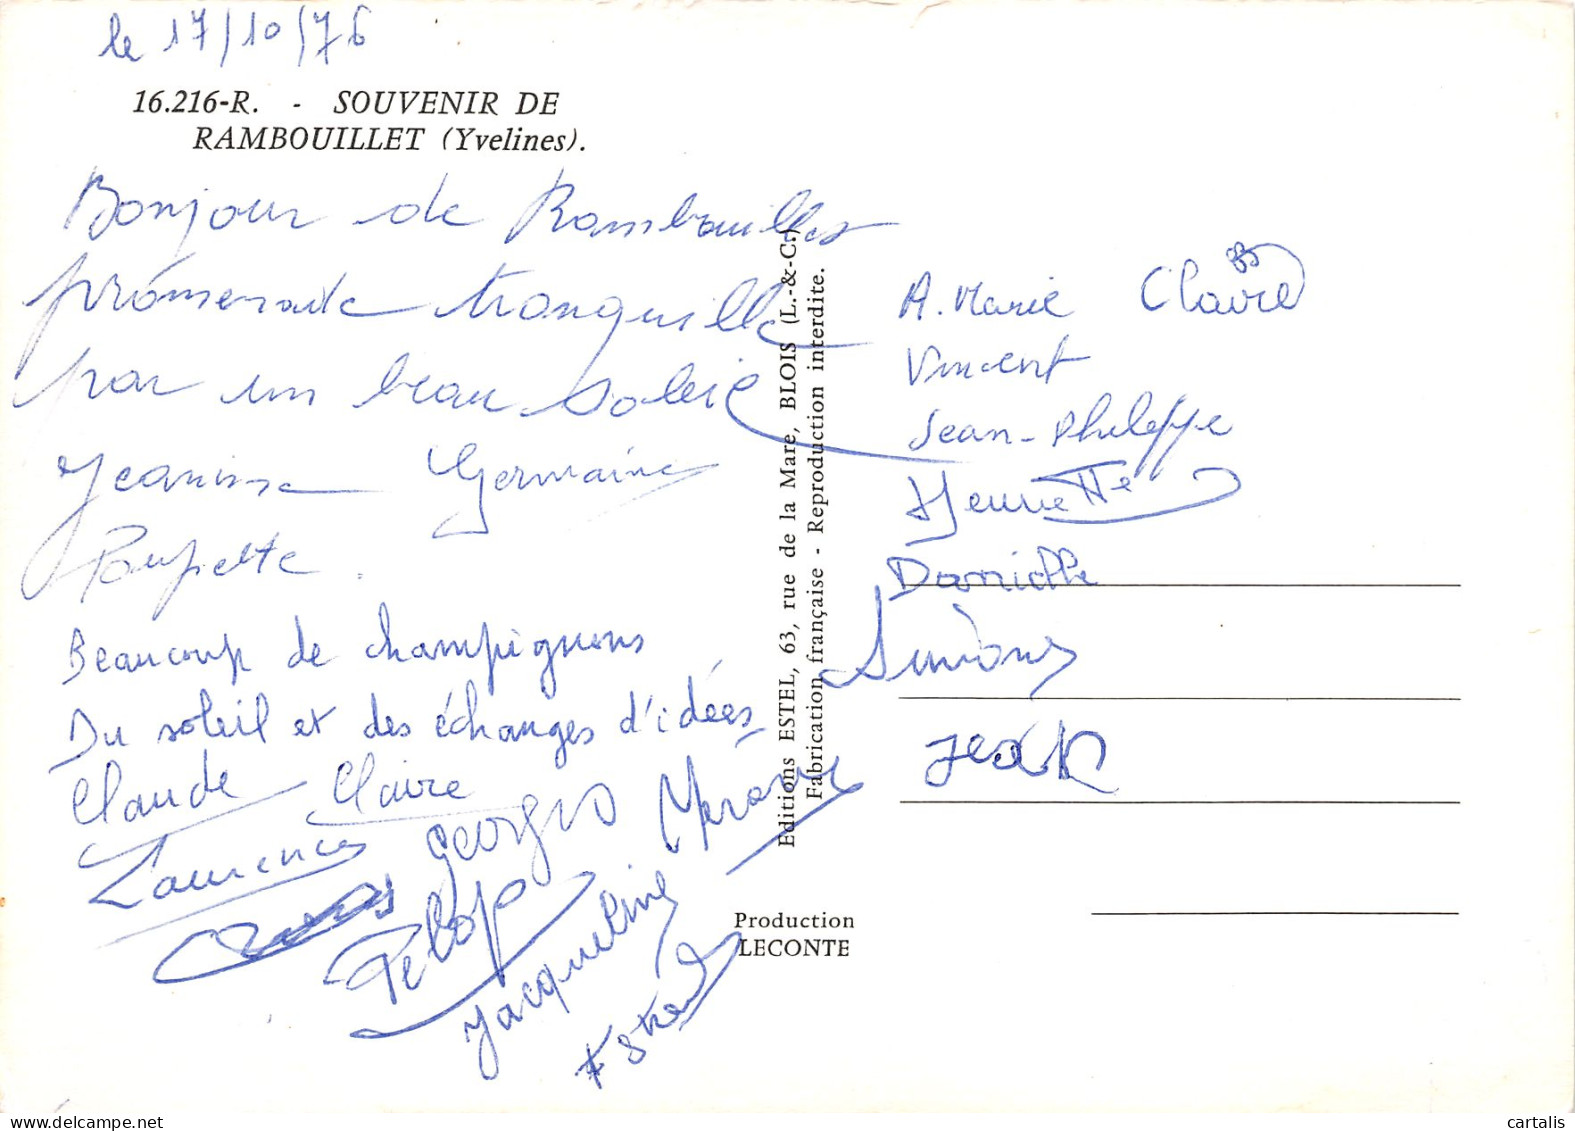 le 17/10/76
16.216-R. - SOUVENIR DE
RAMBOUILLET (Yvelines).
Bonjour de Rambouillet
promenade tranquille
par un beau soleil
Jeanine Germaine
Poupette.
Beaucoup de champignons
Du soleil et des échanges d'idées
Claude Claire
Laurence Georges
Pelop
Jacqueline
Editions ESTEL, 63, rue de la Mare, BLOIS (L.-&-C.)
Fabrication française - Reproduction interdite.
Production
LECONTE
A. Marie Claire
Vincent
Jean-Philippe
Henriette
Danielle
Simone
Jean
cartalis
www.delcampe.net